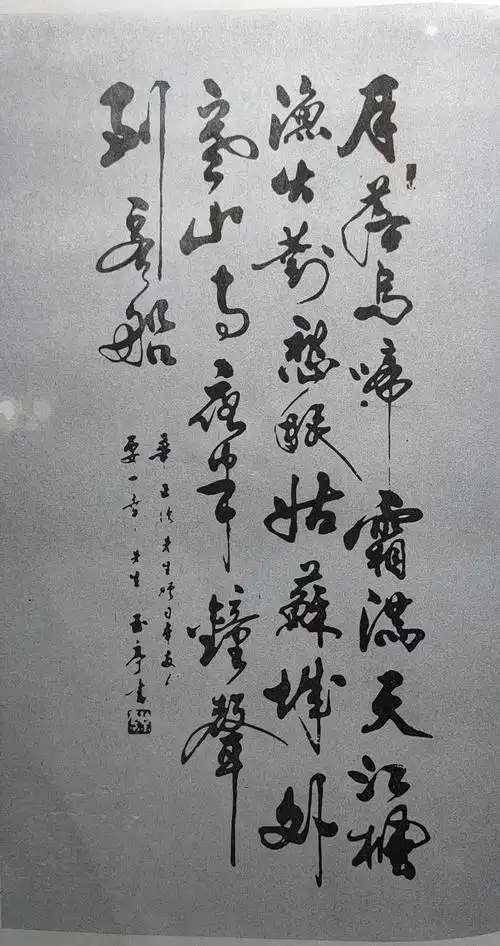 月落烏啼霜滿天江楓
漁火對愁眠姑蘇城外
寒山寺夜半鐘聲
到客船
先生
先生 書